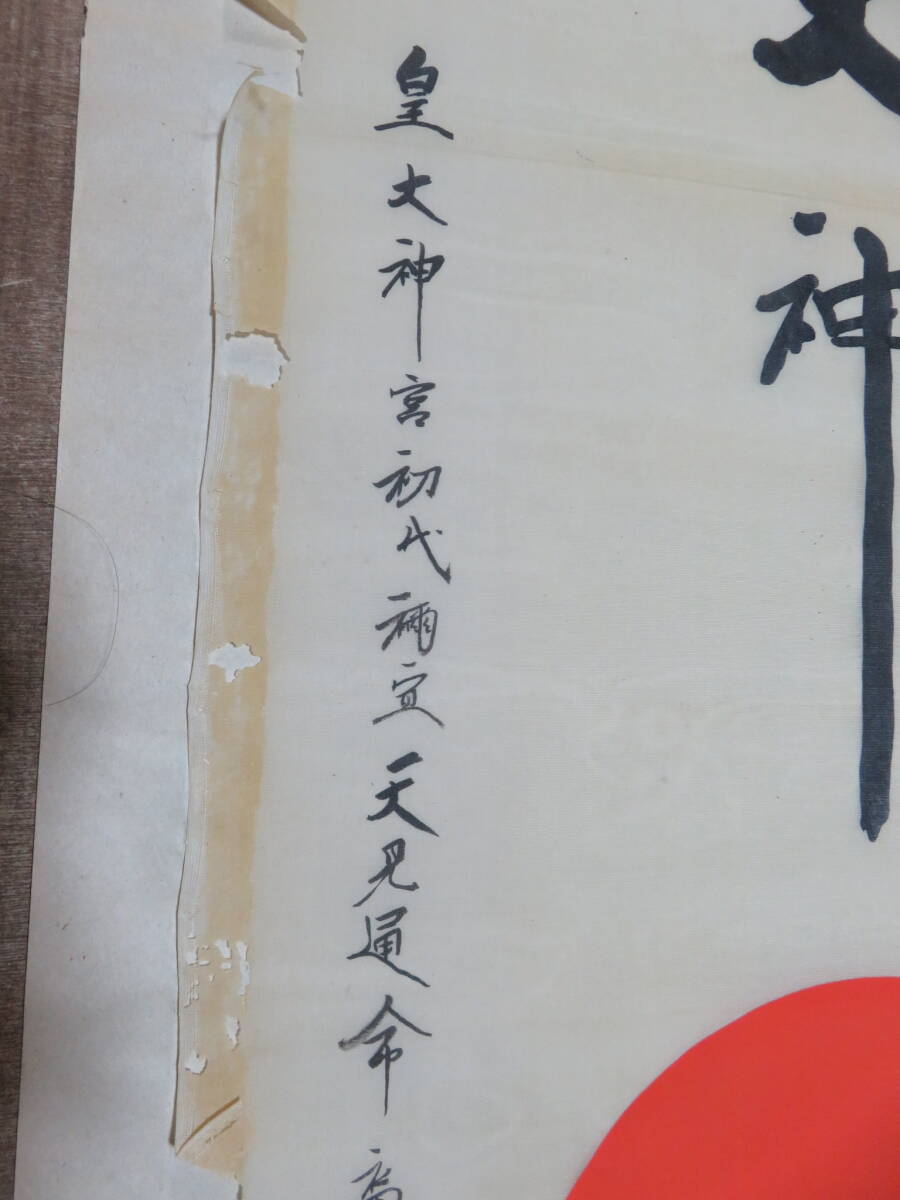 神
皇大神宮初代禰宜天見通命